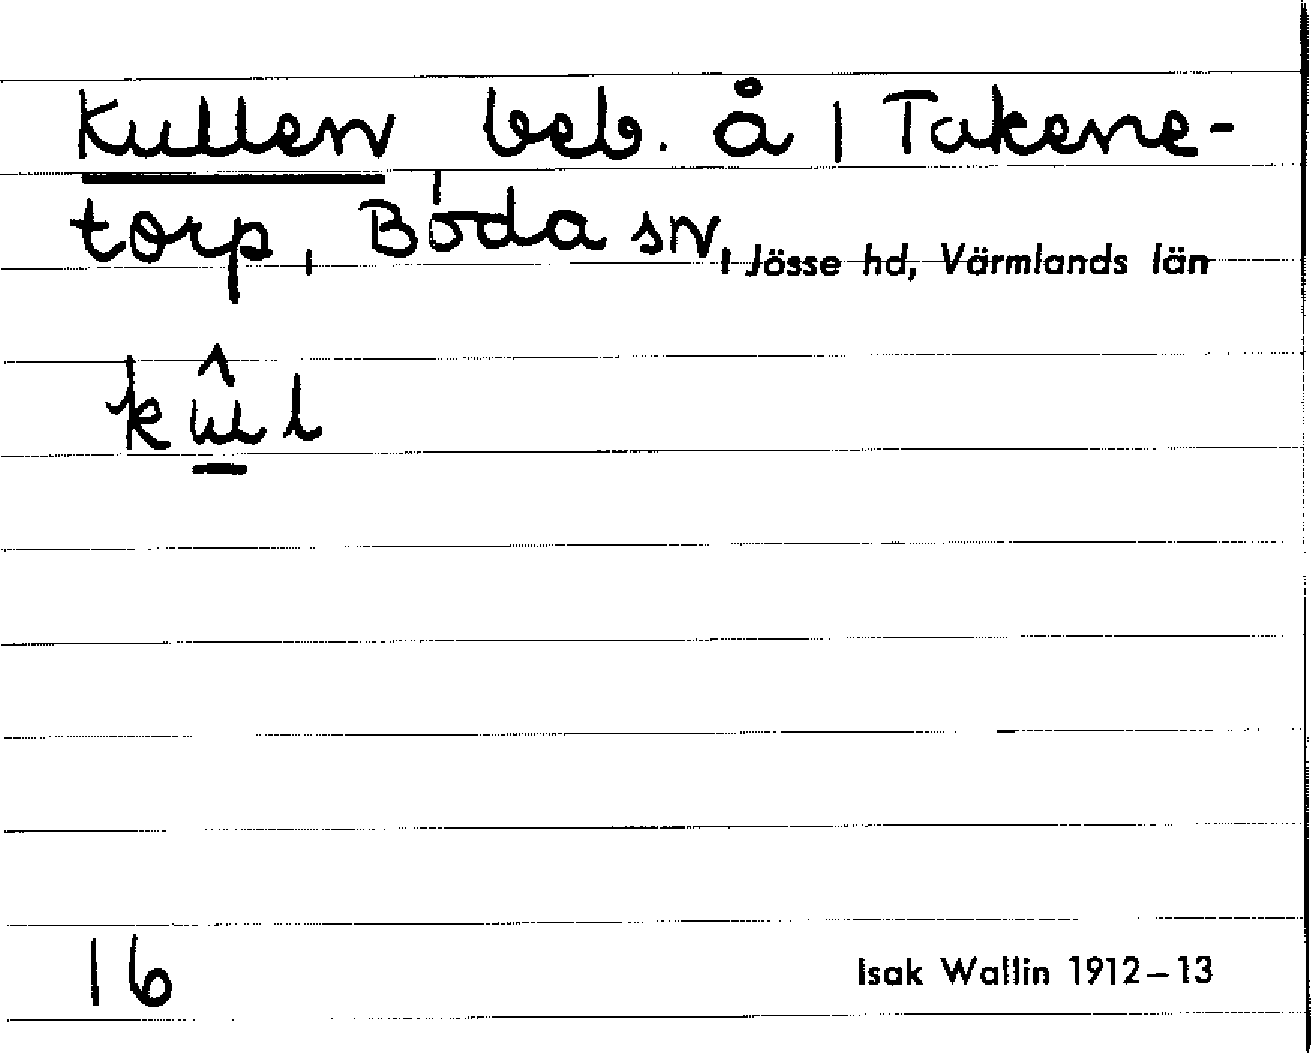 Kullen beb. å 1 Takene-
torp, Boda sn, Jösse hd, Värmlands län
16
Isak Wallin 1912–13